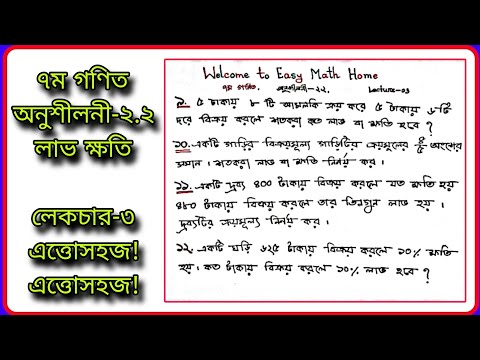 ৭ম গণিত
অনুশীলনী-২.২
লাভ ক্ষতি
লেকচার-৩
এত্তোসহজ!
এত্তোসহজ!
Welcome to Easy Math Home
৭ম গণিত. অনুশীলনী-২.২. Lecture-03
৯. ৫ টাকায় ৮ টি আমলকি ক্রয় করে ৫ টাকায় ৬টি
দরে বিক্রয় করলে শতকরা কত লাভ বা ক্ষতি হবে ?
১০. একটি গাড়ির বিক্রয়মূল্য গাড়িটির ক্রয়মূল্যের ৪/৫ অংশের
সমান । শতকরা লাভ বা ক্ষতি নির্নয় কর ।
১১. একটি দ্রব্য ৪০০ টাকায় বিক্রয় করলে যত ক্ষতি হয়
৪৮০ টাকায় বিক্রয় করলে তার তিনগুন লাভ হয় ।
দ্রব্যটির ক্রয়মূল্য নির্নয় কর ।
১২. একটি ঘড়ি ৬২৫ টাকায় বিক্রয় করলে ১০% ক্ষতি
হয় । কত টাকায় বিক্রয় করলে ১০% লাভ হবে ?